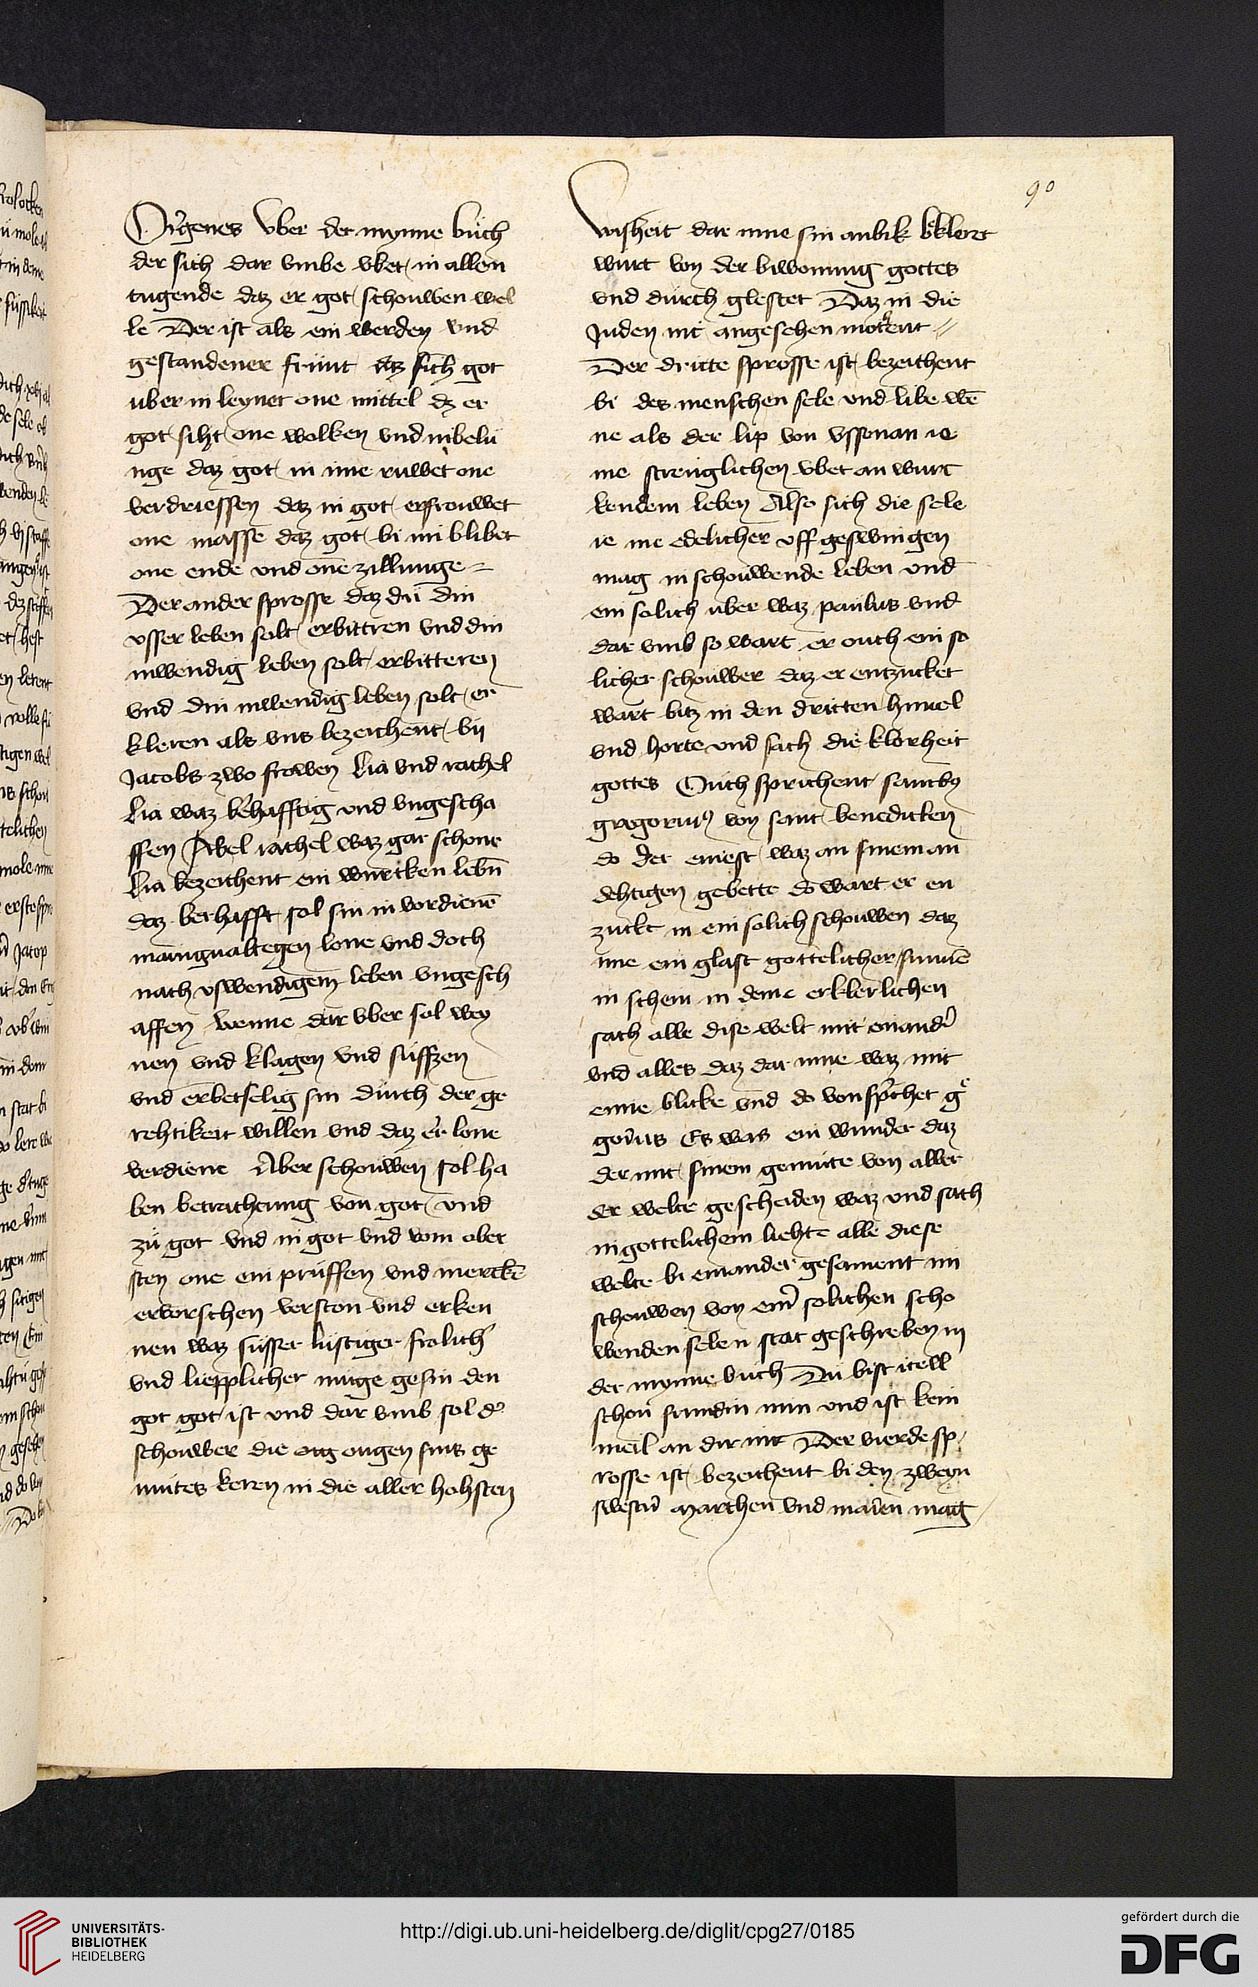 90
Origenes vber der mynne büch
der sich dar vmbe vbet in allen
tugende daz er got schouwen wel
le Der ist als ein werden vnd
gestandener frünt dz sich got
uber in leynet one mittel dz er
got siht one wolken vnd nibelu
nge daz got in ime ruwet one
verdriessen daz in got erfrouwet
one masse daz got bi im blibet
one ende vnd one zillunge
Der ander sprosse daz dü din
vsser leben solt erbittren vnd din
inwendig leben solt erbitteren
vnd din inwendig leben solt er
kleren als vns bezeichent bij
Jacobs zwo frowen lia vnd rachel
lia waz berhafftig vnd vngescha
ffen Abel rachel waz gar schone
lia bezeichent ein würcken lebn̄
daz berhafft sol sin in vordienē
manigualtegen lone vnd doch
nach vswendigem leben vngesch
affen wenne dar vber sol wey
nen vnd klagen vnd süffzen
vnd erbetselig sin durch der ge
rehtikeit willen vnd daz er lone
verdiene Aber schouwen sol ha
ben betrachtung von got vnd
zü got vnd in got vnd vom ober
sten one ein prüffen vnd merckē
ervorschen verston vnd erken
nen waz süsser lustiger frolich
vnd liepplicher muge gesin den
got got ist vnd dar vmb sol d
schouwer die oug ougen sins ge
mütes keren in die aller hohsten
wisheit dar inne sin anbik ƀklert
würt von der biwonung gottes
vnd durch glestet Daz in die
Juden nit angesehen mohtent
Der dritte sprosse ist bezeichent
bi des menschen sele vnd libe wē
ne als der lip von vssenan ie
me strenglichen vbet an würc
kendem leben Also sich die sele
ie me edelicher vff geswingen
mag in schouwende leben vnd
ein solich uber waz paulus vnd
dar vmb so wart er ouch ein so
licher schouwer daz er entzucket
wart bitz in den dritten himel
vnd horte vnd sach die klorheit
gottes Ouch sprichent sanctus
gregorius von sant benedicten
do der einest waz an sinem an
dehtigen gebette do wart er en
zuckt in ein solich schouwen daz
ime ein glast gottelicher sunnē
in schein in deme erklerlichen
sach alle dise welt mit einand
vnd alles daz dar inne waz mit
eime blicke vnd do von sprichet gͤ
gorius Es was ein wunder daz
der mit sinem gemüte von aller
der welte gescheiden waz vnd sach
in gottelichem liehte alle diese
welte bi einander gesament im
schouwen von einr solichen scho
wenden selen stat geschreben in
der mynne buch Du bist itell
schon fründin min vnd ist kein
meil an dir nit Der vierde sp
rosse ist bezeichent bi den zweyn
swestern Marthen vnd marien mag
UNIVERSITÄTS-
BIBLIOTHEK
HEIDELBERG
http://digi.ub.uni-heidelberg.de/diglit/cpg27/0185
gefördert durch die
DFG